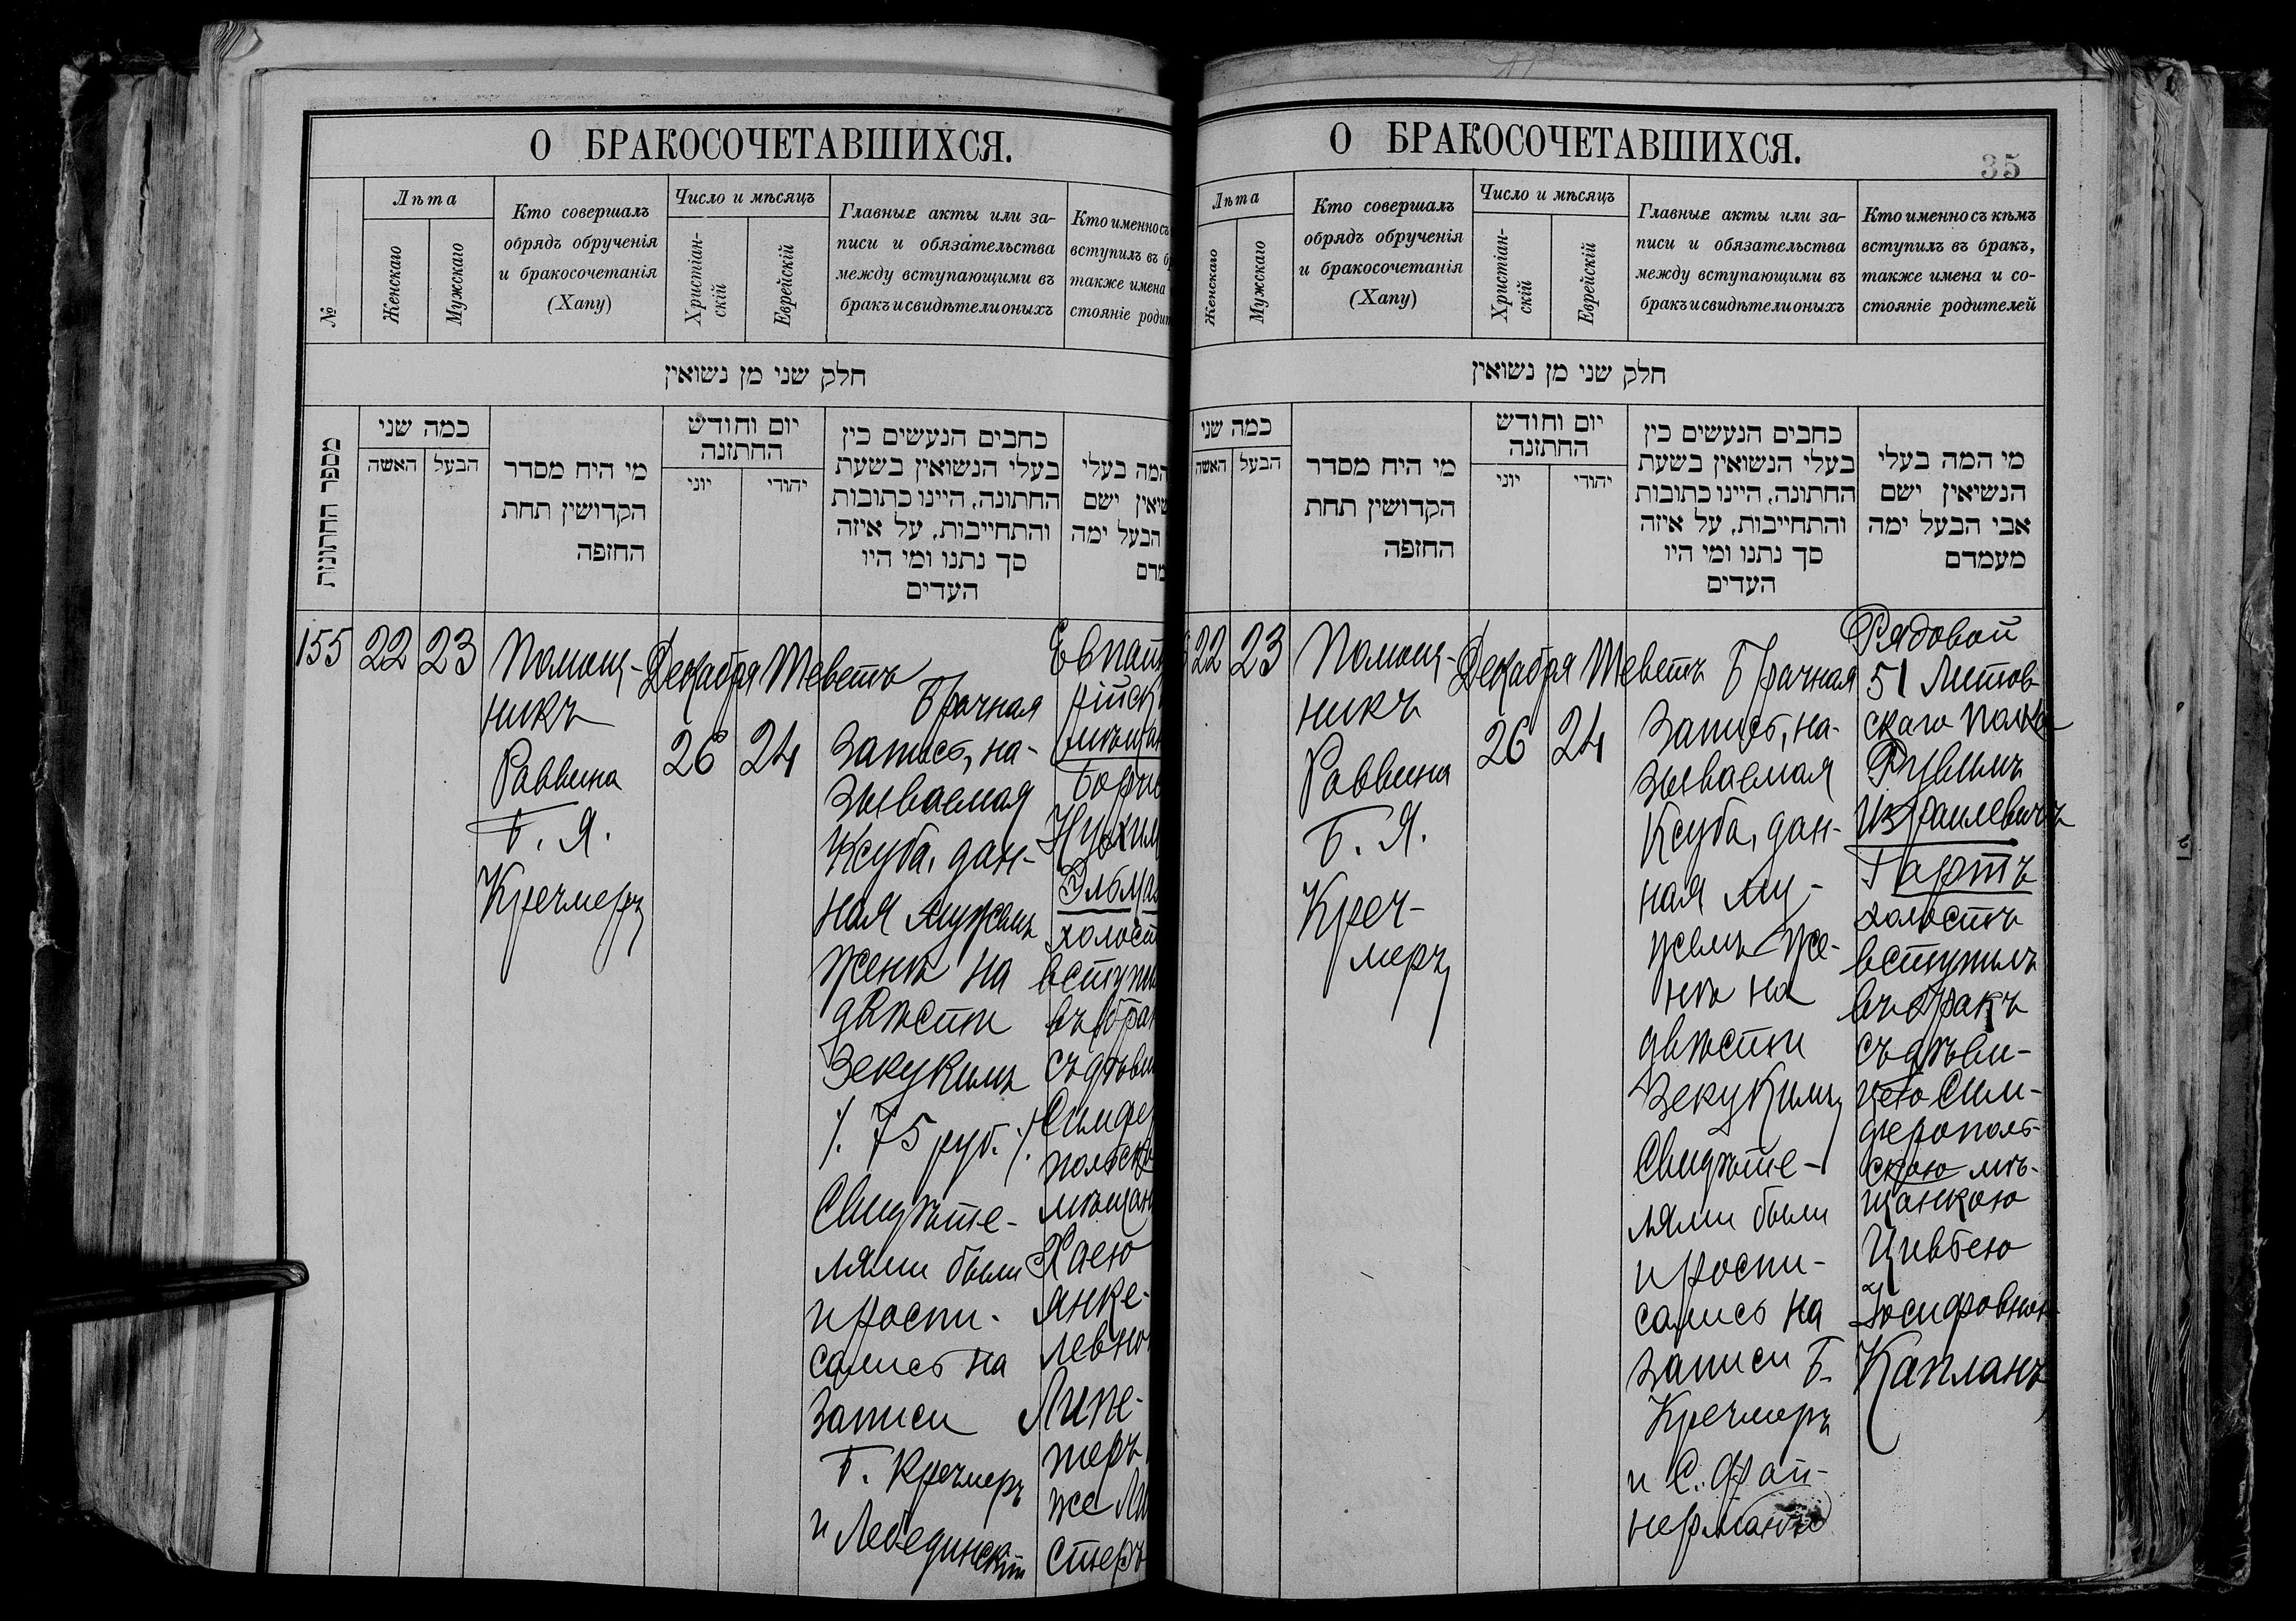 О БРАКОСОЧЕТАВШИХСЯ.
№
Лѣта
Женскаго
Мужскаго
Кто совершалъ
обрядъ обрученія
и бракосочетанія
(Хапу)
Число и мѣсяцъ
Христіан-
скій
Еврейскій
Главные акты или за-
писи и обязательства
между вступающими въ
бракъ и свидѣтели оныхъ
Кто именно съ
вступилъ въ б
также имена
стояніе роди
חלק שני מן נשואין
מספר החתונות
כמה שני
האשה
הבעל
מי היה מסדר
הקדושין תחת
החופה
יום וחודש
החתונה
יוני
יהודי
כתבים הנעשים בין
בעלי הנשואין בשעת
החתונה, היינו כתובות
והתחייבות, על איזה
סך נתנו ומי היו
העדים
המה בעלי
שיאין ישם
הבעל ימה
מדם
155
22
23
Помощ-
никъ
Раввина
Б. Я.
Кречмеръ
Декабря
26
Теветъ
24
Брачная
запись, на-
зываемая
Ксуба, дан-
ная мужемъ
женѣ на
двѣсти
зекукимъ
/. 75 руб. /.
Свидѣте-
лями были
и роспи-
сались на
записи
Б. Кречмеръ
и Лебединскій
Евпато
рійск
мѣщан
Борис
Нухим
холост
вступи
въ брак
съ дѣви
Симфер
польско
мѣщан
Хаею
Янке-
левно
Липе-
теръ
же Ли
стеръ
О БРАКОСОЧЕТАВШИХСЯ.
35
Лѣта
Женскаго
Мужскаго
Кто совершалъ
обрядъ обрученія
и бракосочетанія
(Хапу)
Число и мѣсяцъ
Христіан-
скій
Еврейскій
Главные акты или за-
писи и обязательства
между вступающими въ
бракъ и свидѣтели оныхъ
Кто именно съ кѣмъ
вступилъ въ бракъ,
также имена и со-
стояніе родителей
חלק שני מן נשואין
כמה שני
האשה
הבעל
מי היה מסדר
הקדושין תחת
החופה
יום וחודש
החתונה
יוני
יהודי
כתבים הנעשים בין
בעלי הנשואין בשעת
החתונה, היינו כתובות
והתחייבות, על איזה
סך נתנו ומי היו
העדים
מי המה בעלי
הנשיאין ישם
אבי הבעל ימה
מעמדם
22
23
Помощ-
никъ
Раввина
Б. Я.
Креч-
меръ
Декабря
26
Теветъ
24
Брачная
запись, на-
зываемая
Ксуба, дан-
ная му-
жемъ же-
нѣ на
двѣсти
зекукимъ
Свидѣте-
лями были
и роспи-
сались на
записи Б.
Кречмеръ
и С. Фай-
нерманъ
Рядовой
51 Литов-
скаго полка
Рувимъ
Израилевичъ
Гартъ
холостъ
вступилъ
въ бракъ
съ дѣви-
цею Сим-
ферополь-
скою мѣ-
щанкою
Цивьею
Іосифовною
Капланъ